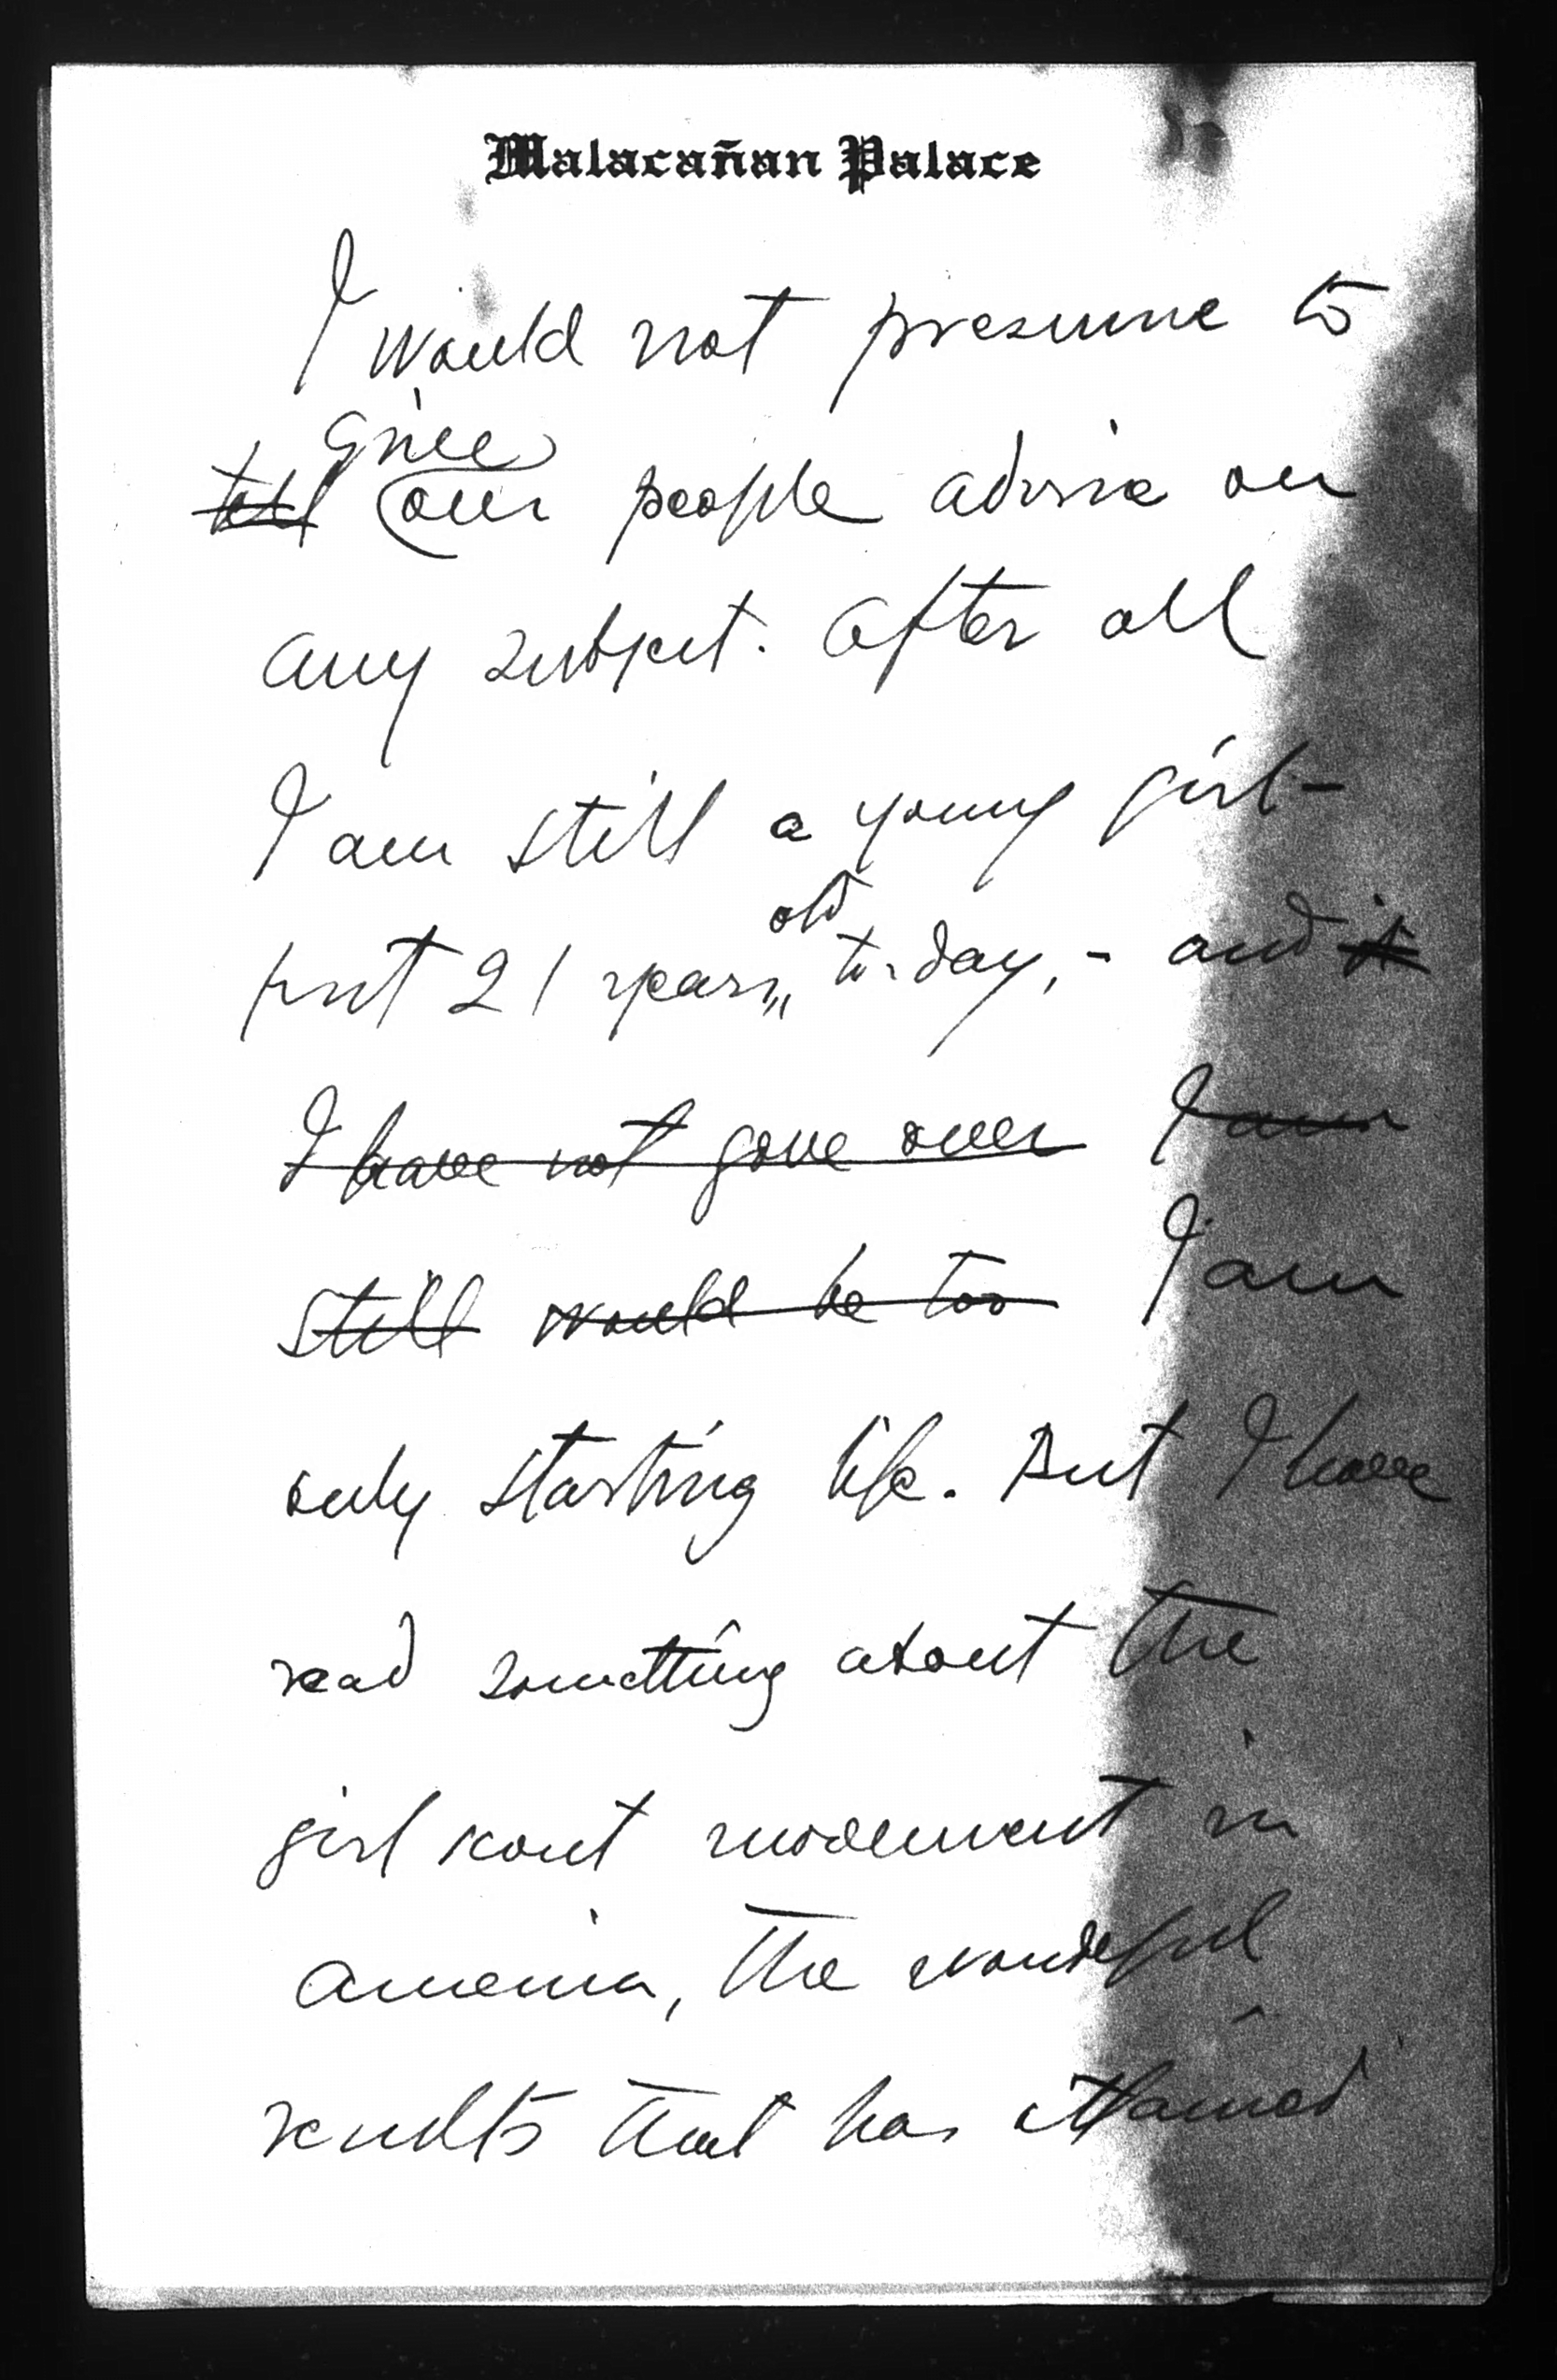 Malacañan Palace
I would not presume to
give
tell our people advice on
any subject. After all
I am still a young girl -
old
just 21 years,, to-day, - and it
I have not gone over I am
still would be too I am
only starting life. But I have
read something about the
girl scout movement in
America, the wonderful
results that has attained